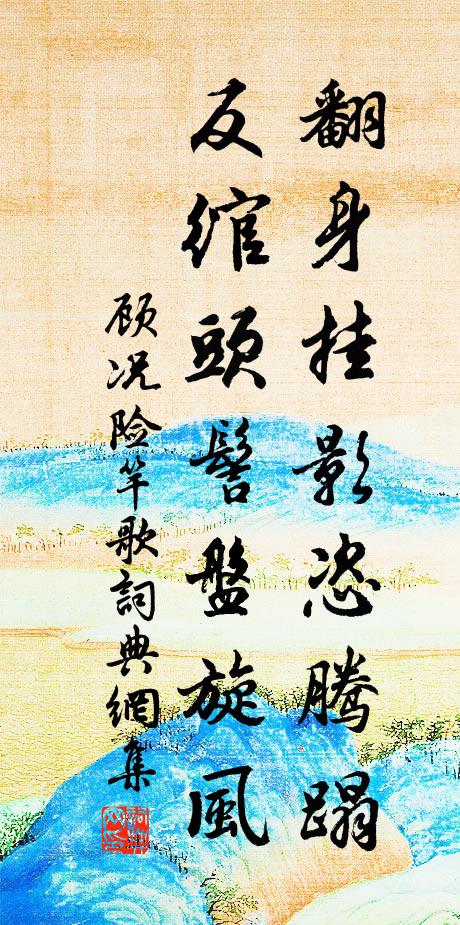 翻身挂影恣腾蹋
反綰頭髻盤旋風
顾况险竿歌詞典網集